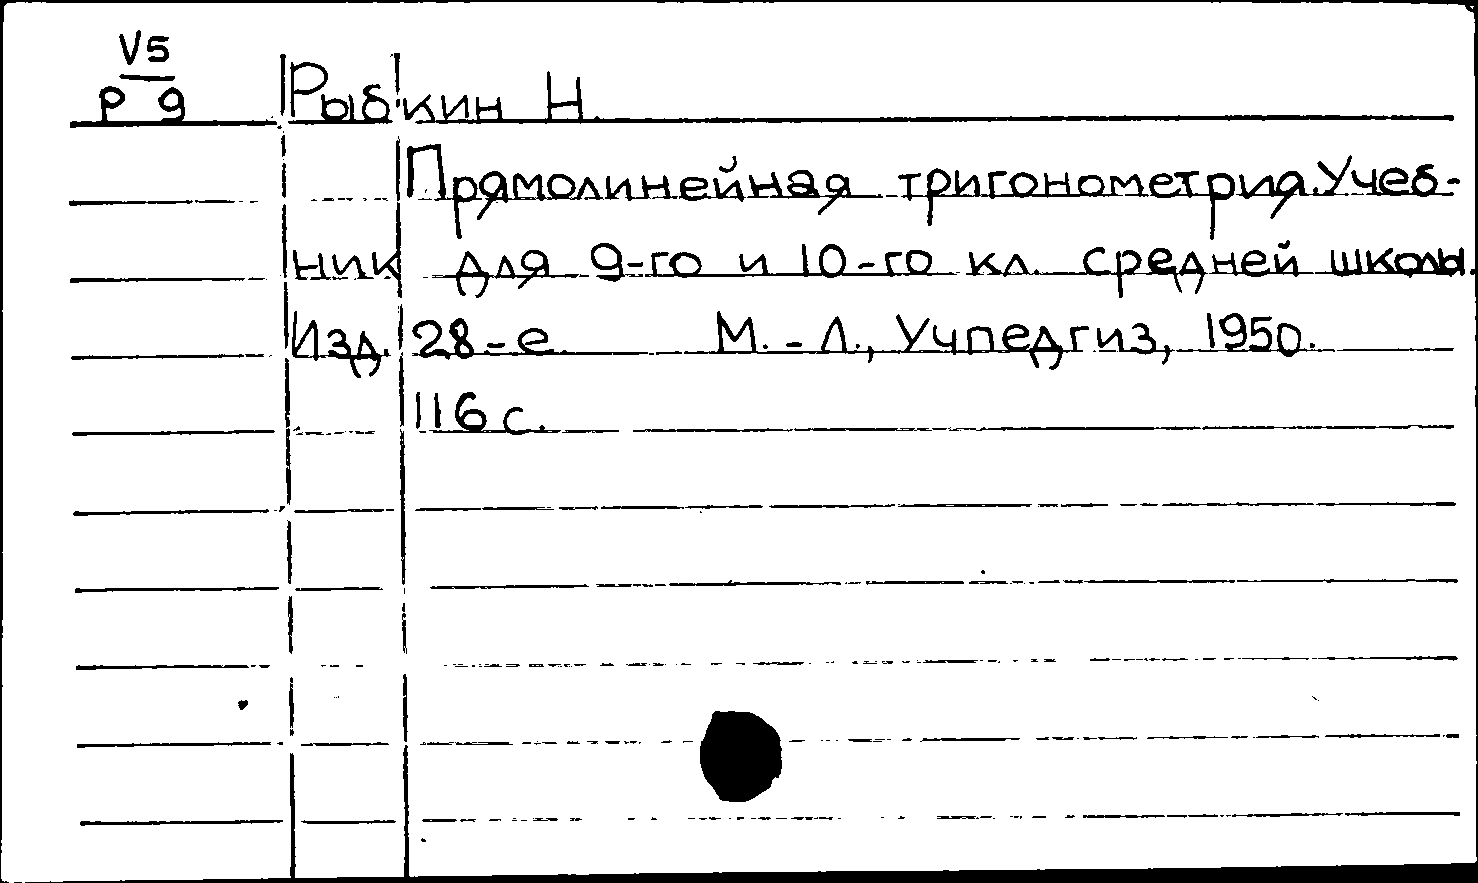 V5
Р 9
Рыбкин Н.
Прямолинейная тригонометрия. Учеб-
ник для 9-го и 10-го кл. средней школы.
Изд. 28-е М.-Л., Учпедгиз, 1950.
116 с.